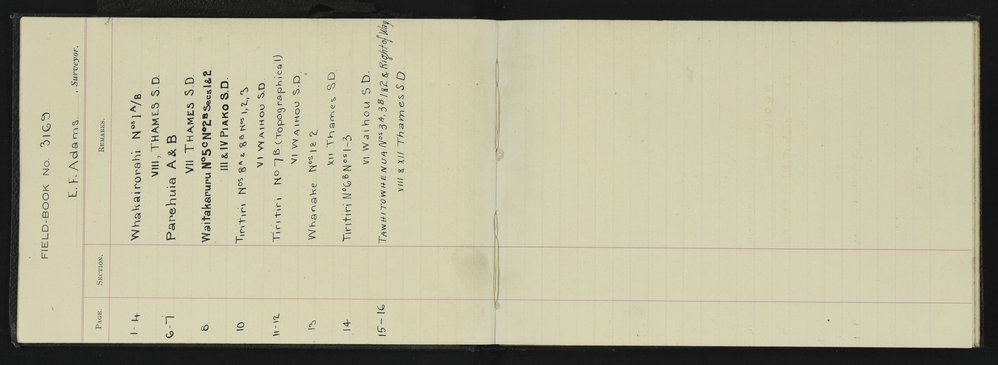 FIELD-BOOK No. 3169
E. F. Adams, Surveyor.
PAGE. SECTION. REMARKS.
1-4 Whakairorahi Nos 1A/B
VIII, THAMES S.D.
6-7 Parehuia A & B
VII THAMES S.D
8 Waitakaruru No5C No2B Secs 1&2
III & IV PIAKO S.D.
10 Tiritiri Nos 8A & 8B Nos 1,2,3
VI WAIHOU S.D
11-12 Tiritiri No 7B (Topographical)
VI WAIHOU S.D.
13 Whanake Nos 1&2
XII Thames S.D
14 Tiritiri No6B Nos 1-3
VI Waihou S.D.
15-16 TAWHITOWHENUA Nos 3A, 3B 1&2 & Right of Way
VIII & XII Thames S.D